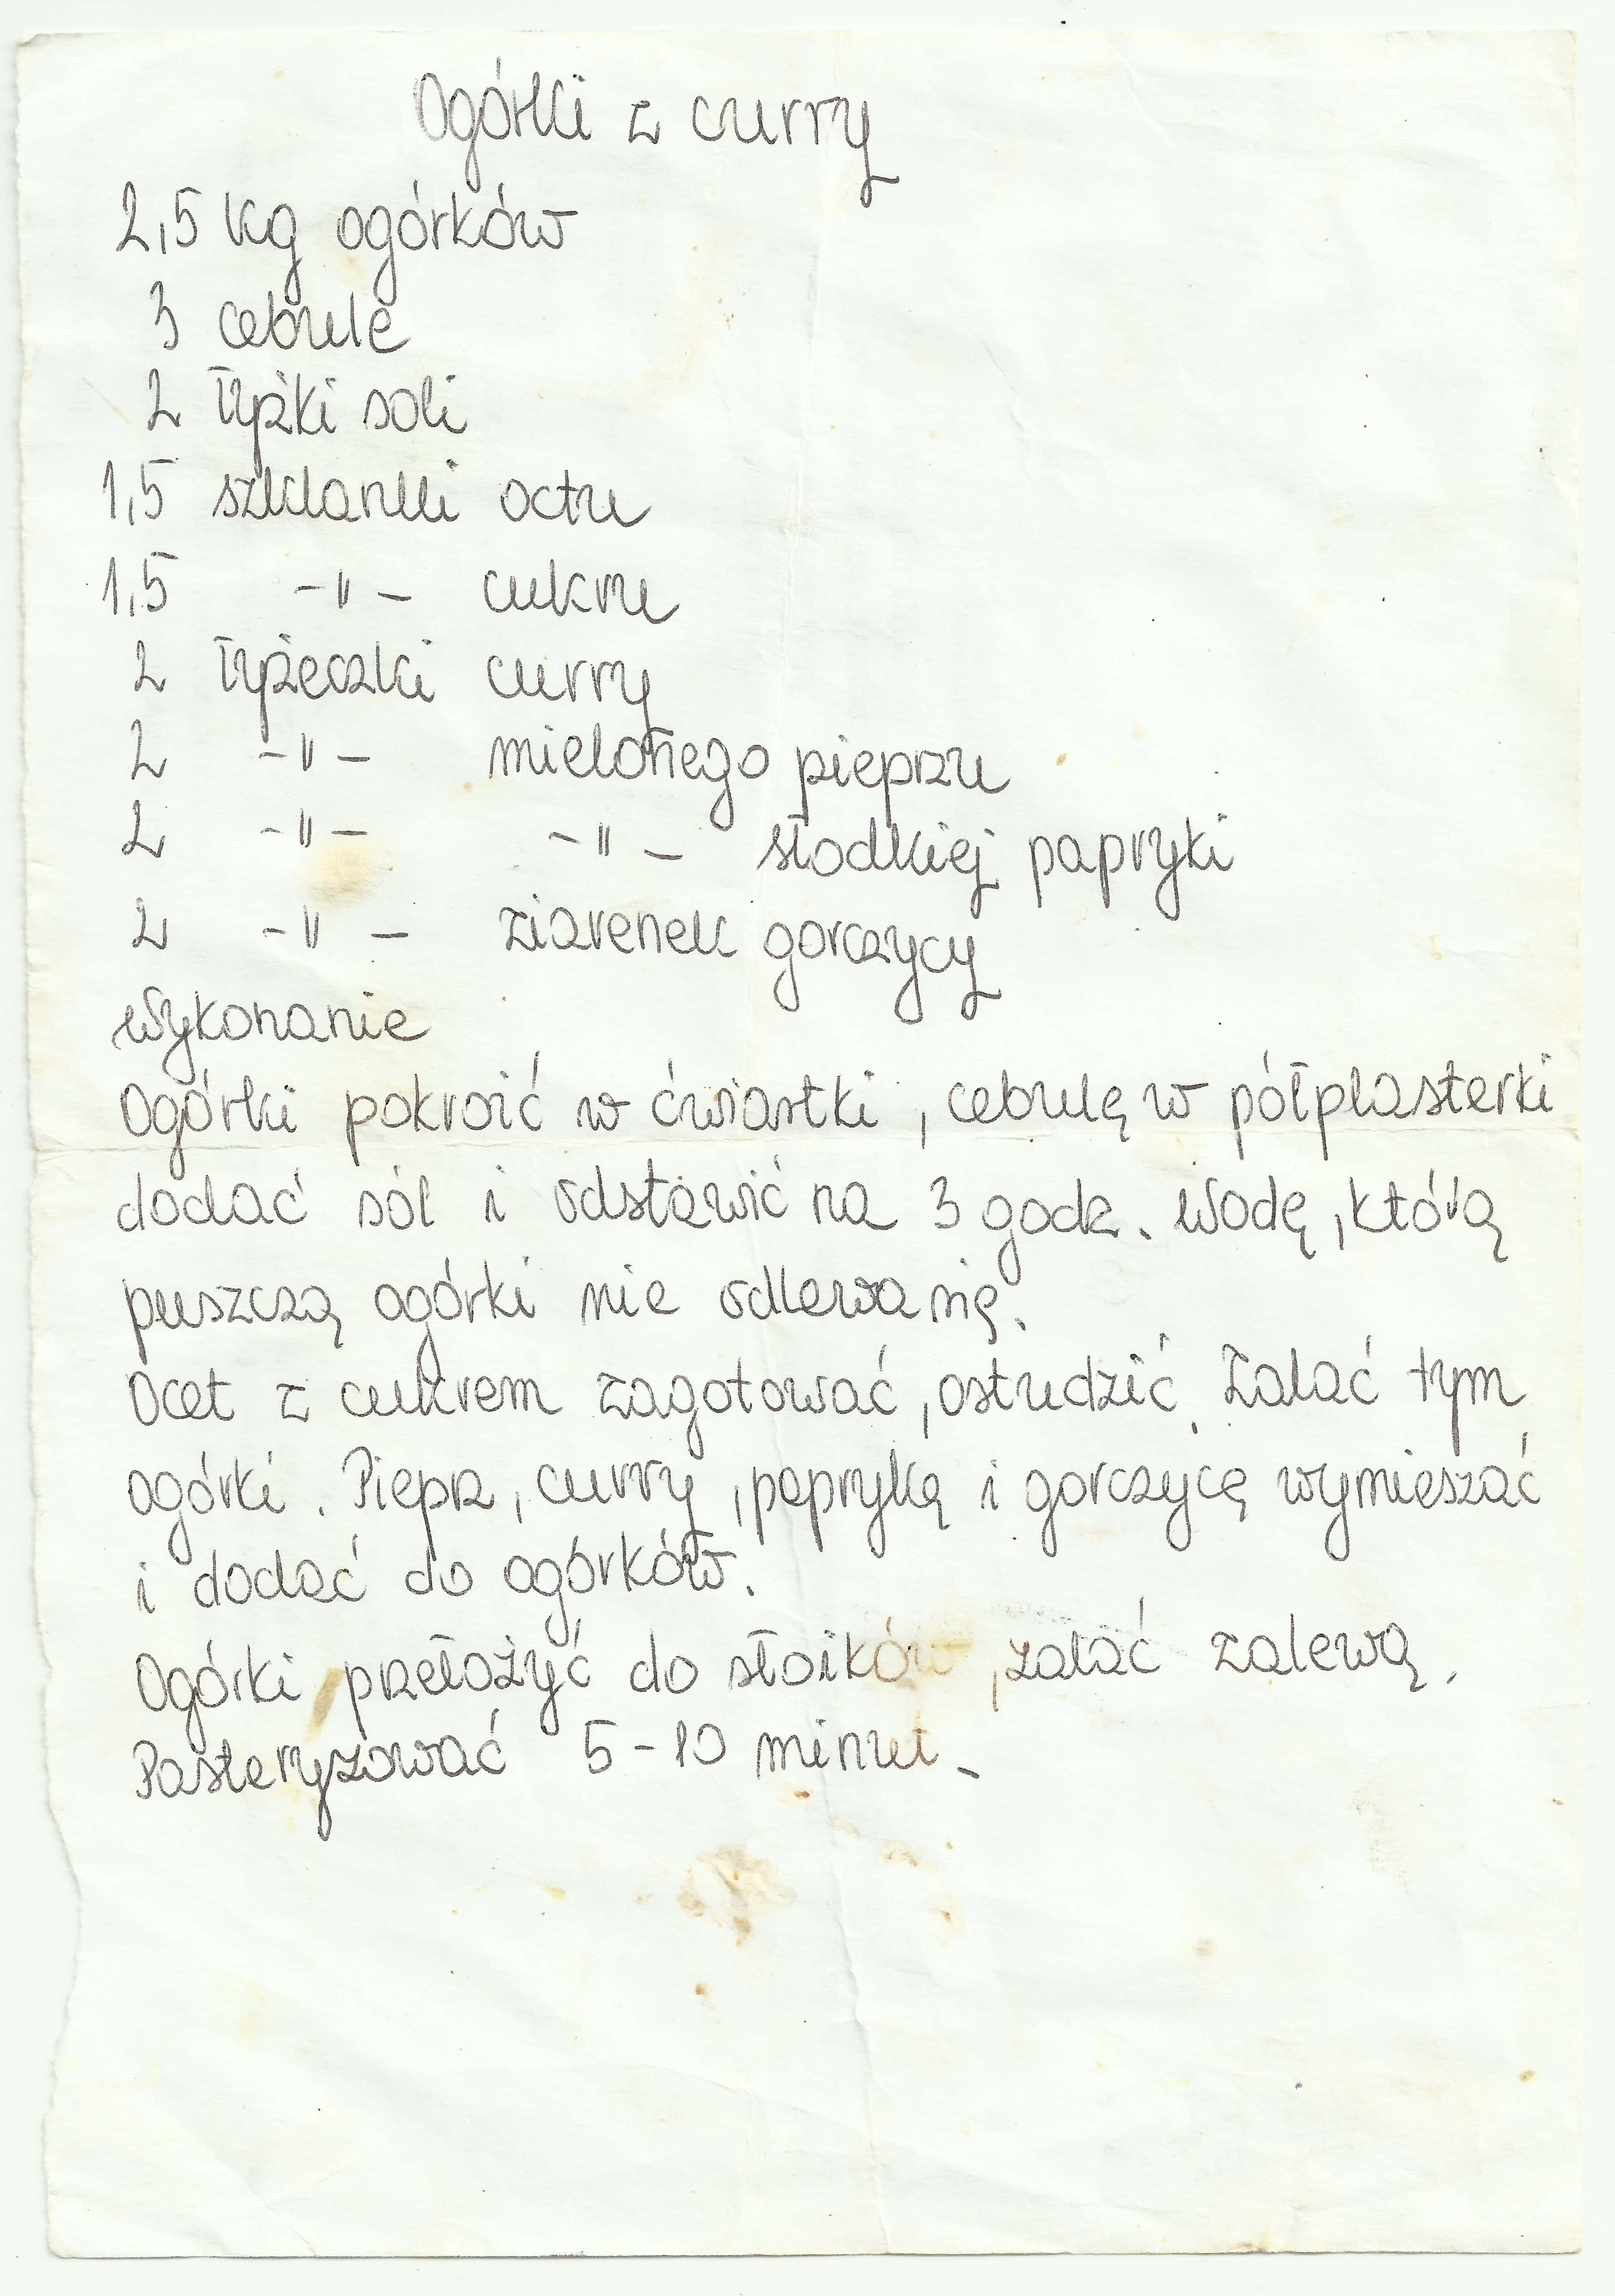 Ogórki z curry
2,5 kg ogórków
3 cebule
2 łyżki soli
1,5 szklanki octu
1,5 -"- cukru
2 łyżeczki curry
2 -"- mielonego pieprzu
2 -"- -"- słodkiej papryki
2 -"- ziarenek gorczycy
Wykonanie
Ogórki pokroić w ćwiartki, cebulę w półplasterki
dodać sól i odstawić na 3 godz. Wodę, którą
puszczą ogórki nie odlewa się.
Ocet z cukrem zagotować, ostudzić. Zalać tym
ogórki. Pieprz, curry, paprykę i gorczycę wymieszać
i dodać do ogórków.
Ogórki przełożyć do słoików, zalać zalewą.
Pasteryzować 5-10 minut.